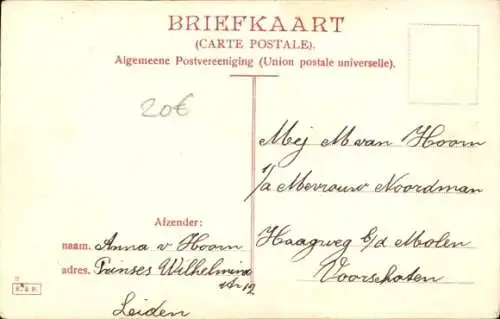 BRIEFKAART
(CARTE POSTALE).
Algemeene Postvereeniging (Union postale universelle).
20€
Mej M van Hoorn
1/a Mevrouw Noordman
Haagweg b/d Molen
Voorschoten
Afzender:
naam. Anna v Hoorn
adres. Prinses Wilhelmina
Leiden